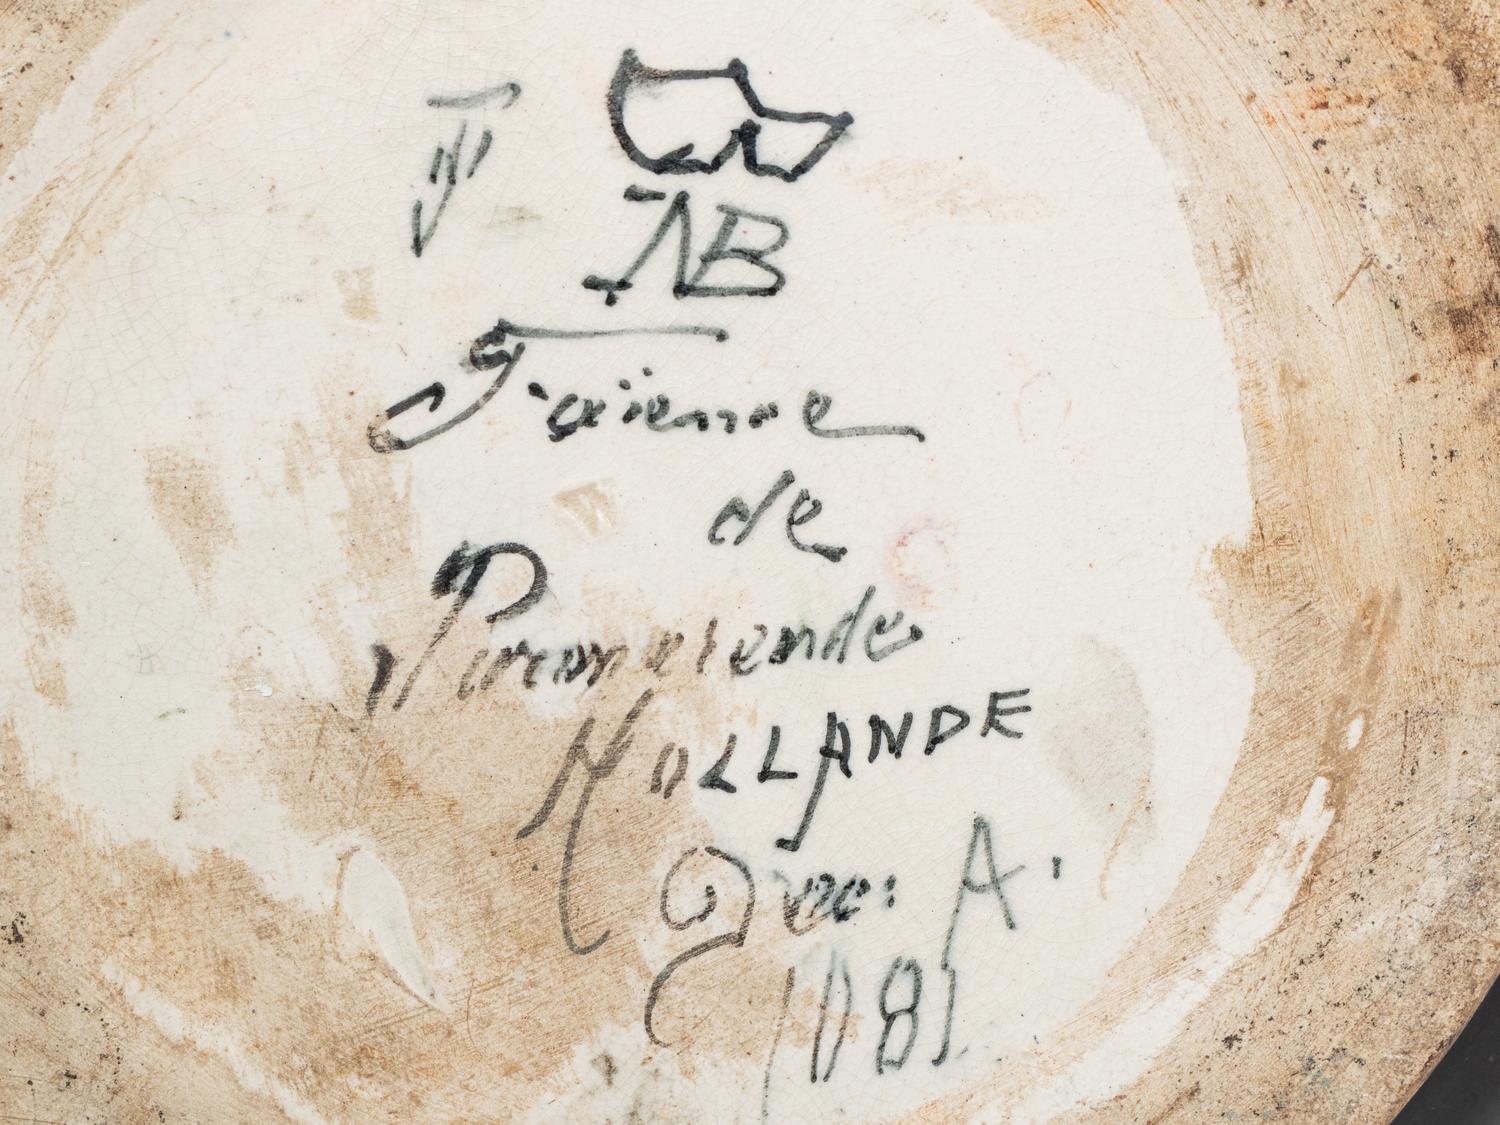 NB
Faïence
de
Purmerende
HOLLANDE
Qual: A.
1081